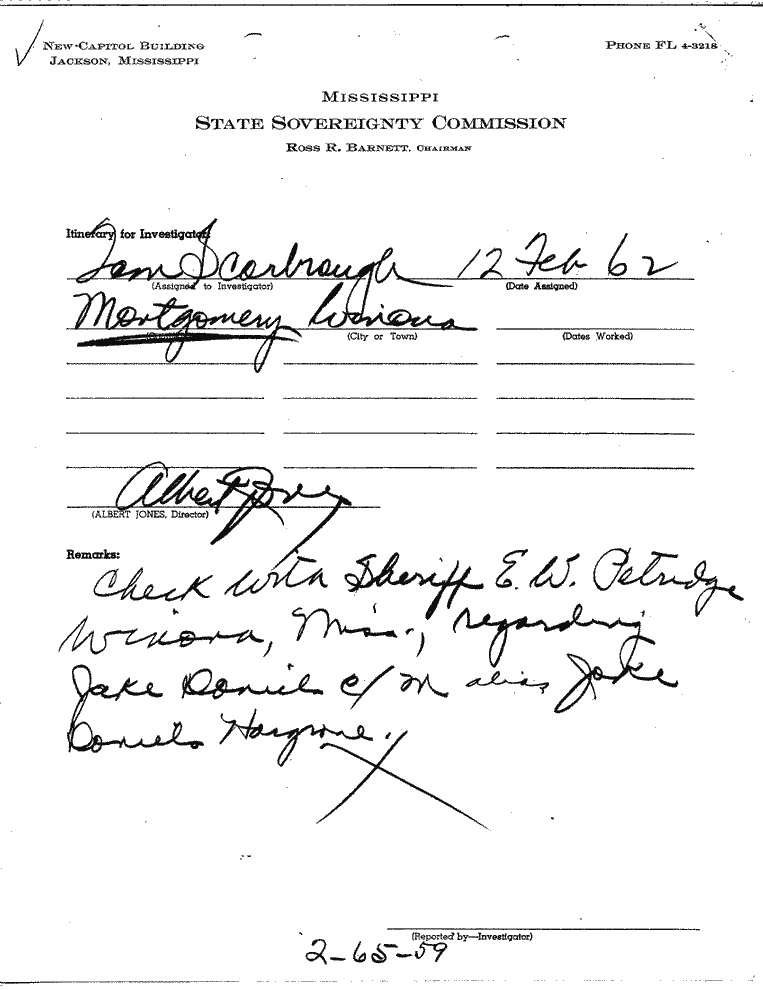 NEW CAPITOL BUILDING
JACKSON, MISSISSIPPI
PHONE FL 4-3218
MISSISSIPPI
STATE SOVEREIGNTY COMMISSION
ROSS R. BARNETT, CHAIRMAN
Itinerary for Investigator:
Tom Scarbrough 12 Feb 62
(Assigned to Investigator) (Date Assigned)
Montgomery Winona
(City or Town) (Dates Worked)
Albert Jones
(ALBERT JONES, Director)
Remarks:
Check with Sheriff E. W. Petridge
Winona, Miss., regarding
Jake Daniels c/m alias Jake
Daniels Hargrove.
(Reported by—Investigator)
2-65-59